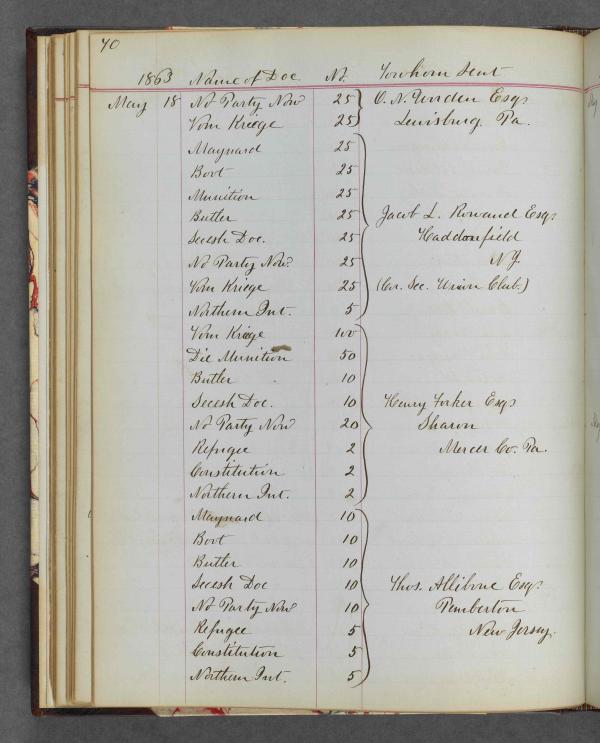 70
1863 Name of Doc. No. To whom Sent
May 18 No Party Now 25 O. N. Worden Esq.
Vom Kriege 25 Lewisburg Pa.
Maynard 25
Boot 25
Munition 25
Butler 25 Jacob L. Rowand Esq.
Secesh Doc. 25 Haddonfield
No Party Now. 25 N.J.
Vom Kriege 25 (Cor. Sec. Union Club.)
Northern Int. 5
Vom Kriege 100
Die Munition 50
Butler 10
Secesh Doc. 10 Henry Forker Esq.
No Party Now 20 Sharon
Refugee 2 Mercer Co. Pa.
Constitution 2
Northern Int. 2
Maynard 10
Boot 10
Butler 10
Secesh Doc 10 Thos. Allibone Esq.
No Party Now 10 Pemberton
Refugee 5 New Jersey.
Constitution 5
Northern Int. 5